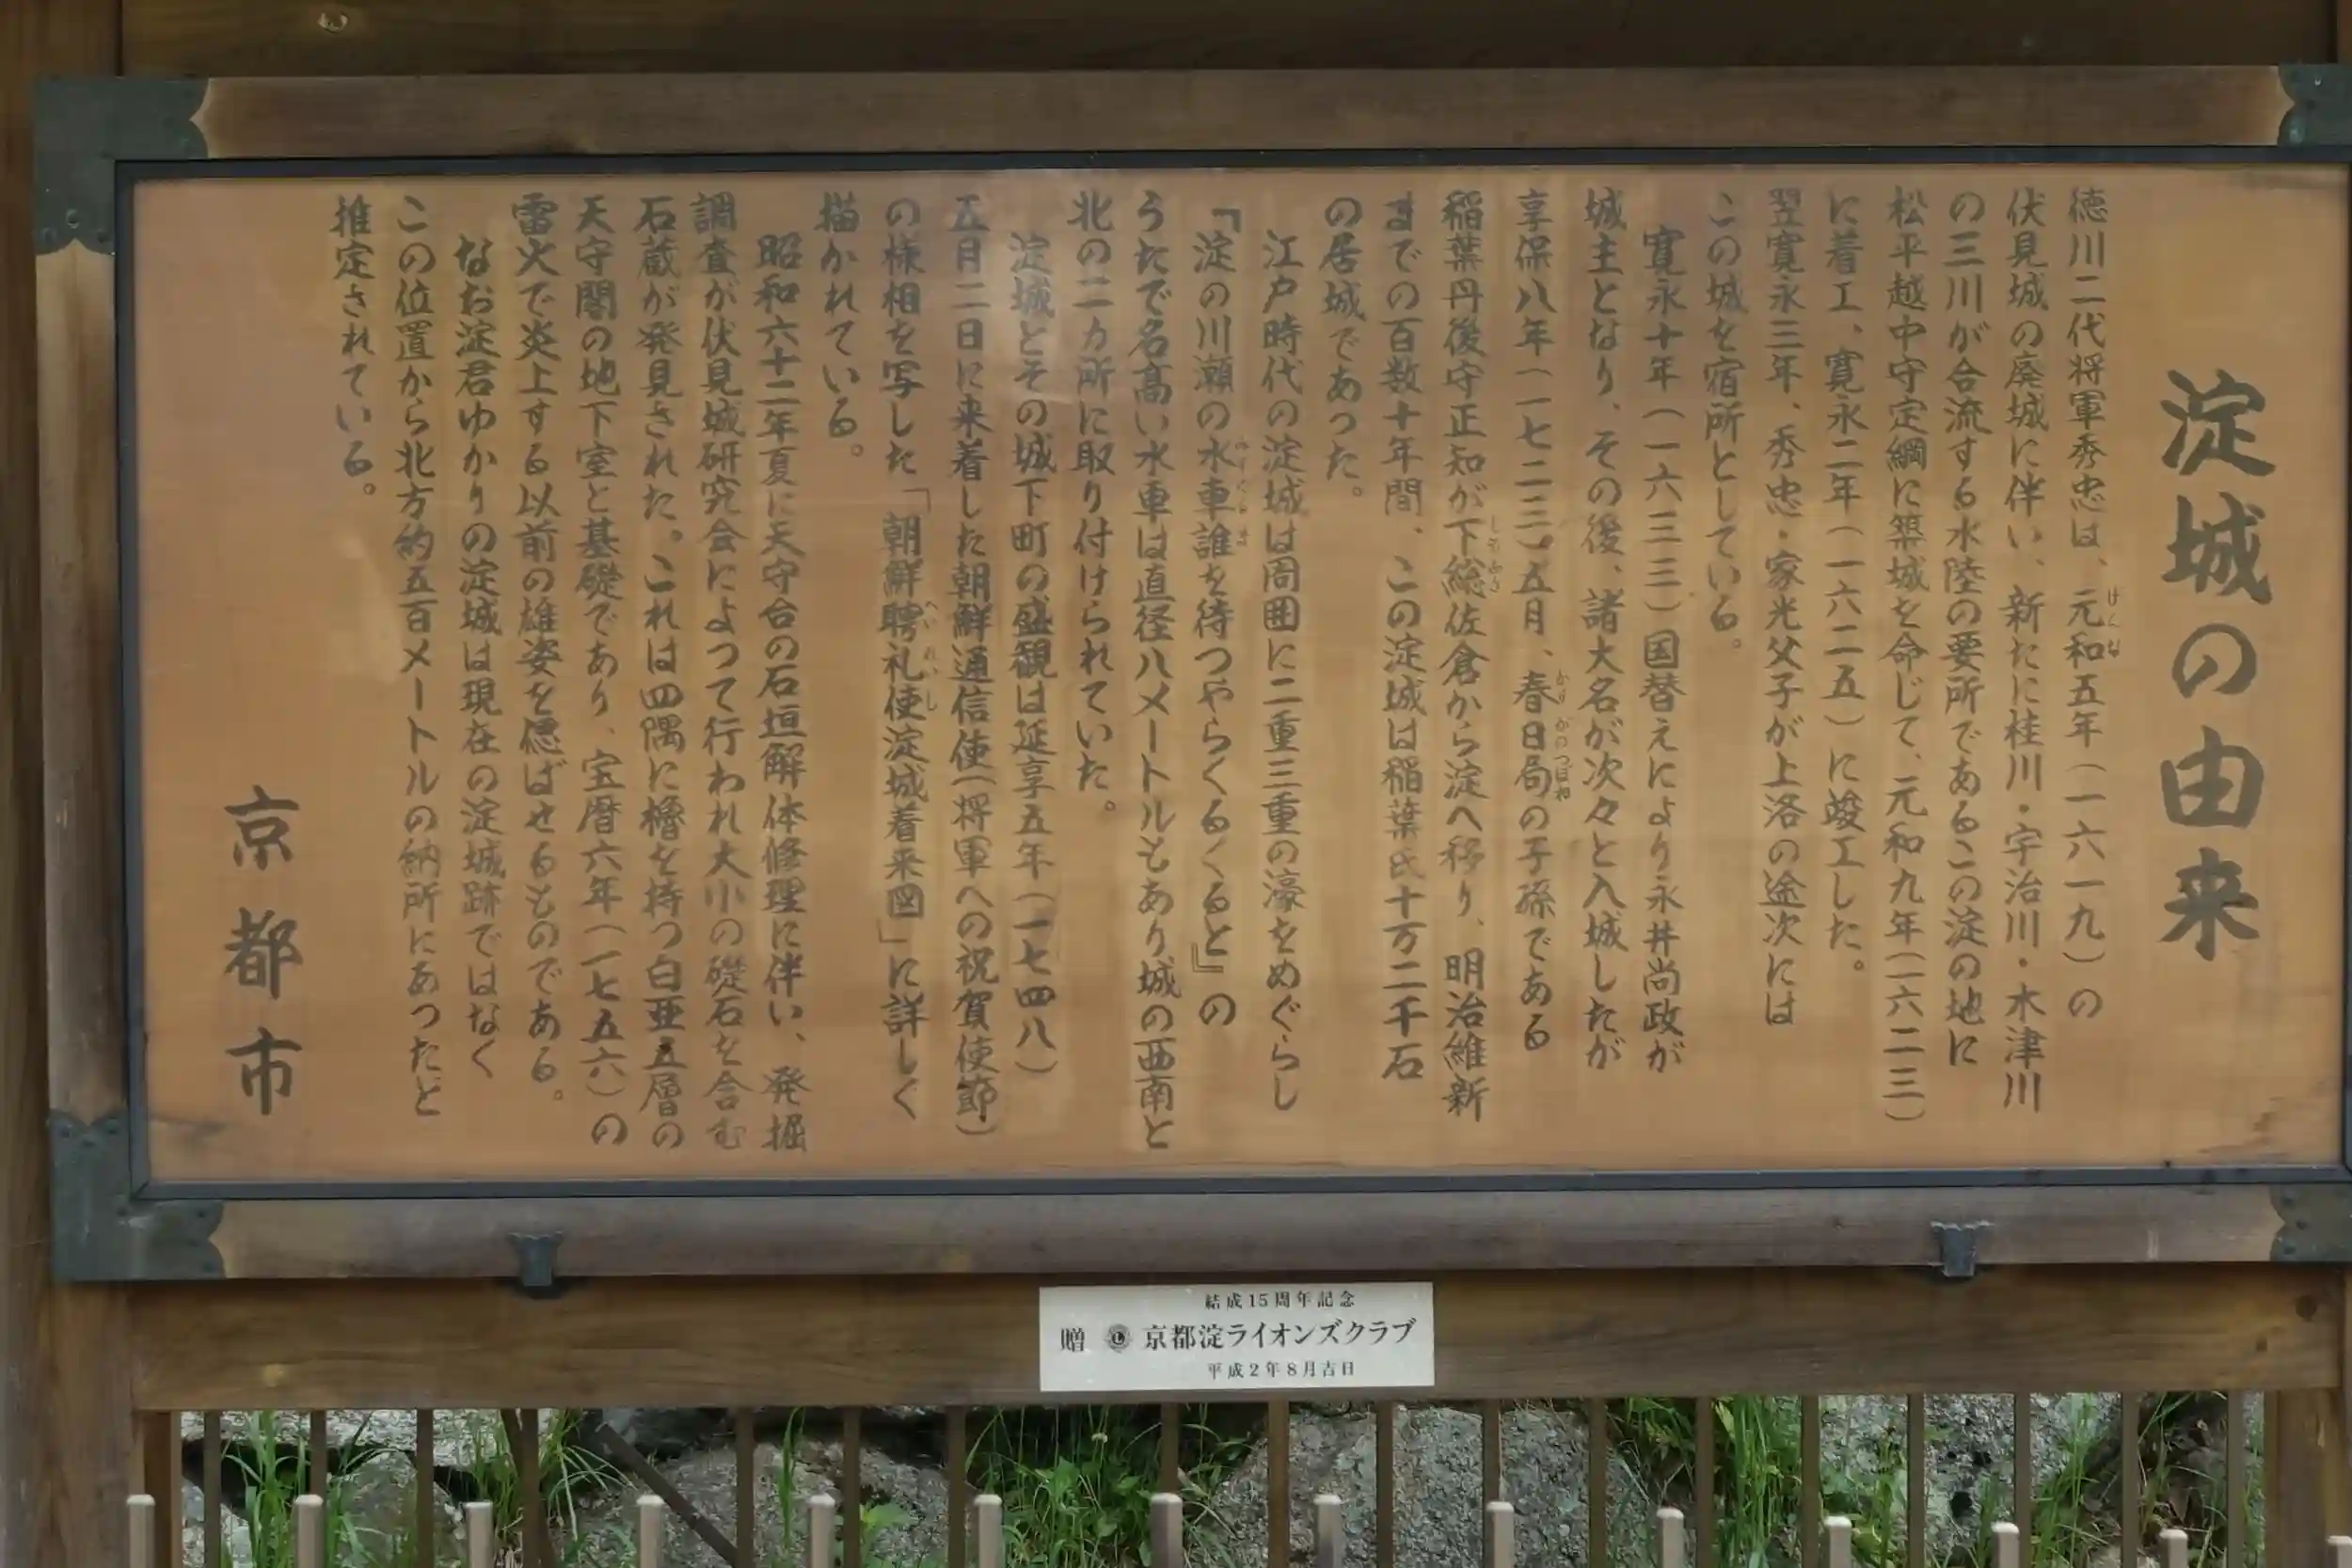 淀城の由来
徳川二代将軍秀忠は、元和五年(一六一九)の
伏見城の廃城に伴い、新たに桂川・宇治川・木津川
の三川が合流する水陸の要所であるこの淀の地に
松平越中守定綱に築城を命じて、元和九年(一六二三)
に着工、寛永二年(一六二五)に竣工した。
翌寛永三年、秀忠・家光父子が上洛の途次には
この城を宿所としている。
寛永十年(一六三三)国替えにより永井尚政が
城主となり、その後、諸大名が次々と入城したが
享保八年(一七二三)五月、春日局の子孫である
稲葉丹後守正知が下総佐倉から淀へ移り、明治維新
までの百数十年間、この淀城は稲葉氏十万二千石
の居城であった。
江戸時代の淀城は周囲に二重三重の濠をめぐらし
『淀の川瀬の水車誰を待つやらくるくると』の
うたで名高い水車は直径八メートルもあり城の西南と
北の二カ所に取り付けられていた。
淀城とその城下町の盛観は延享五年(一七四八)
五月二日に来着した朝鮮通信使(将軍への祝賀使節)
の様相を写した「朝鮮聘礼使淀城着来図」に詳しく
描かれている。
昭和六十二年夏に天守台の石垣解体修理に伴い、発掘
調査が伏見城研究会によって行われ大小の礎石を含む
石蔵が発見された。これは四隅に櫓を持つ白亜五層の
天守閣の地下室と基礎であり、宝暦六年(一七五六)の
雷火で炎上する以前の雄姿を偲ばせるものである。
なお淀君ゆかりの淀城は現在の淀城跡ではなく
この位置から北方約五百メートルの納所にあったと
推定されている。
京都市
結成15周年記念
贈 京都淀ライオンズクラブ
平成2年8月吉日